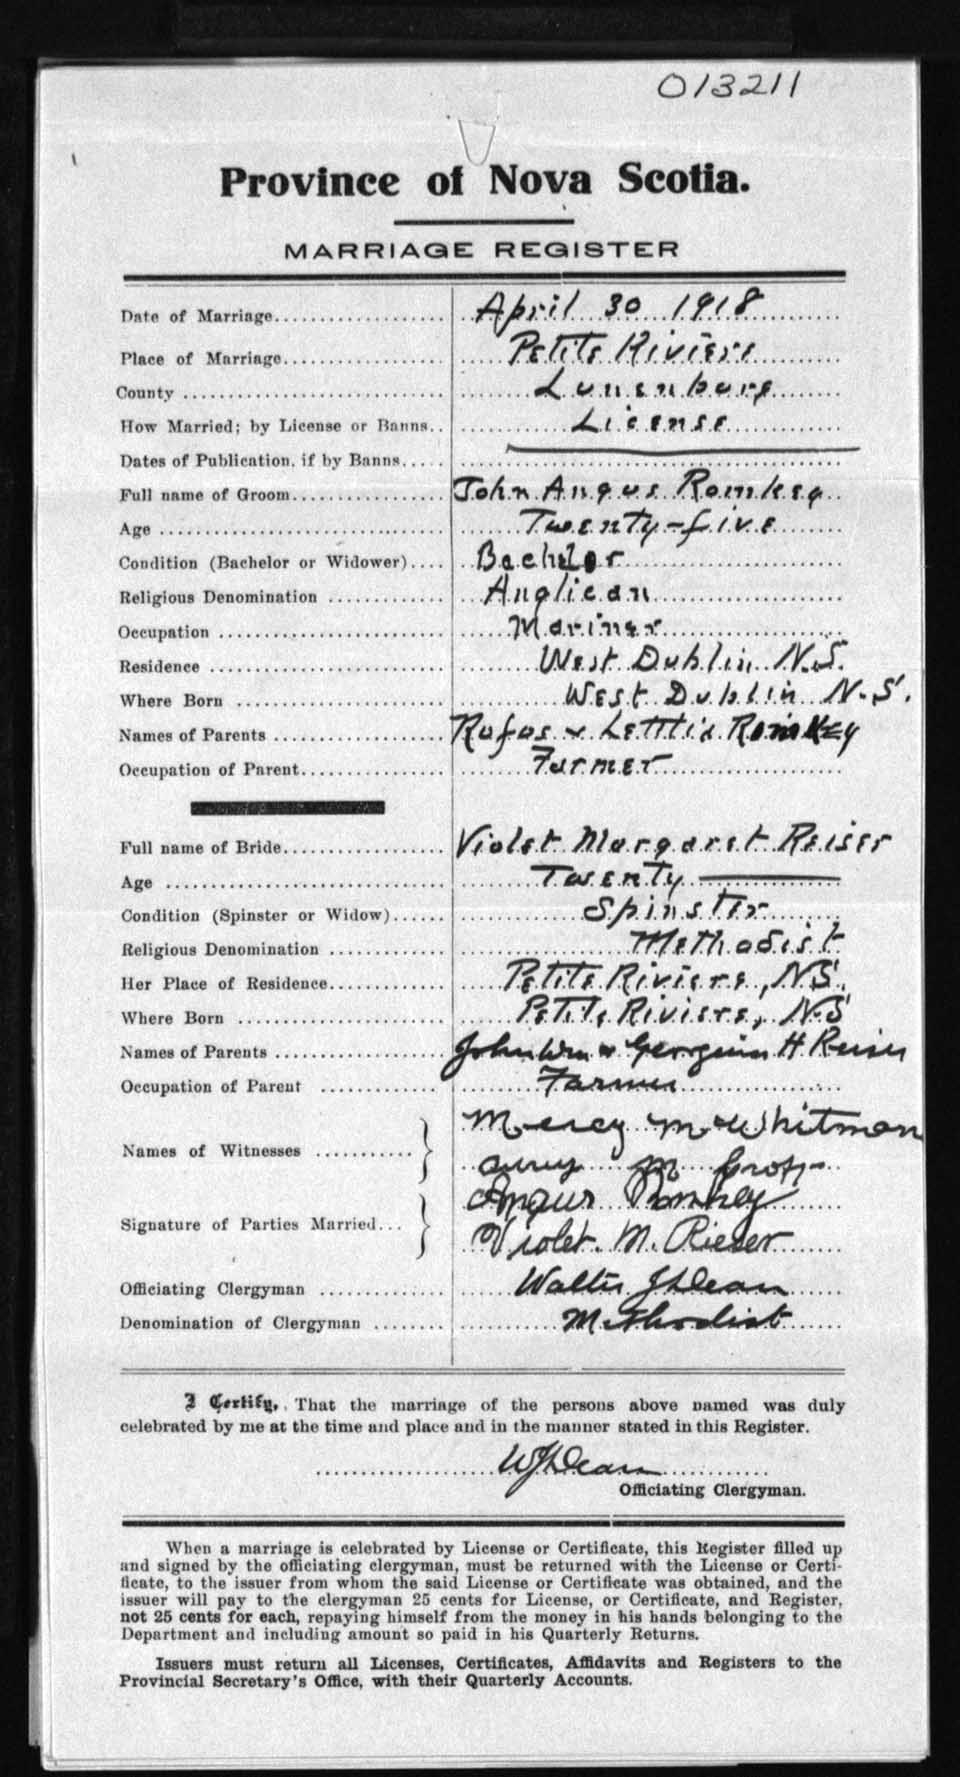 013211
Province of Nova Scotia.
MARRIAGE REGISTER
Date of Marriage April 30 1918
Place of Marriage Petite Riviere
County Lunenburg
How Married; by License or Banns License
Dates of Publication, if by Banns
Full name of Groom John Angus Romkey
Age Twenty-five
Condition (Bachelor or Widower) Bachelor
Religious Denomination Anglican
Occupation Mariner
Residence West Dublin N.S.
Where Born West Dublin N.S.
Names of Parents Rufus & Lettitia Romkey
Occupation of Parent Farmer
Full name of Bride Violet Margaret Reiser
Age Twenty
Condition (Spinster or Widow) Spinster
Religious Denomination Methodist
Her Place of Residence Petite Riviere, N.S.
Where Born Petite Riviere, N.S
Names of Parents John Wm & Georgina H Reiser
Occupation of Parent Farmer
Names of Witnesses Mercy M Whitman
M
Signature of Parties Married Angus Romkey
Violet. M. Rieser
Officiating Clergyman Walter J Dean
Denomination of Clergyman Methodist
I Certify, That the marriage of the persons above named was duly
celebrated by me at the time and place and in the manner stated in this Register.
WJ Dean
Officiating Clergyman.
When a marriage is celebrated by License or Certificate, this Register filled up
and signed by the officiating clergyman, must be returned with the License or Certi-
ficate, to the issuer from whom the said License or Certificate was obtained, and the
issuer will pay to the clergyman 25 cents for License, or Certificate, and Register,
not 25 cents for each, repaying himself from the money in his hands belonging to the
Department and including amount so paid in his Quarterly Returns.
Issuers must return all Licenses, Certificates, Affidavits and Registers to the
Provincial Secretary's Office, with their Quarterly Accounts.